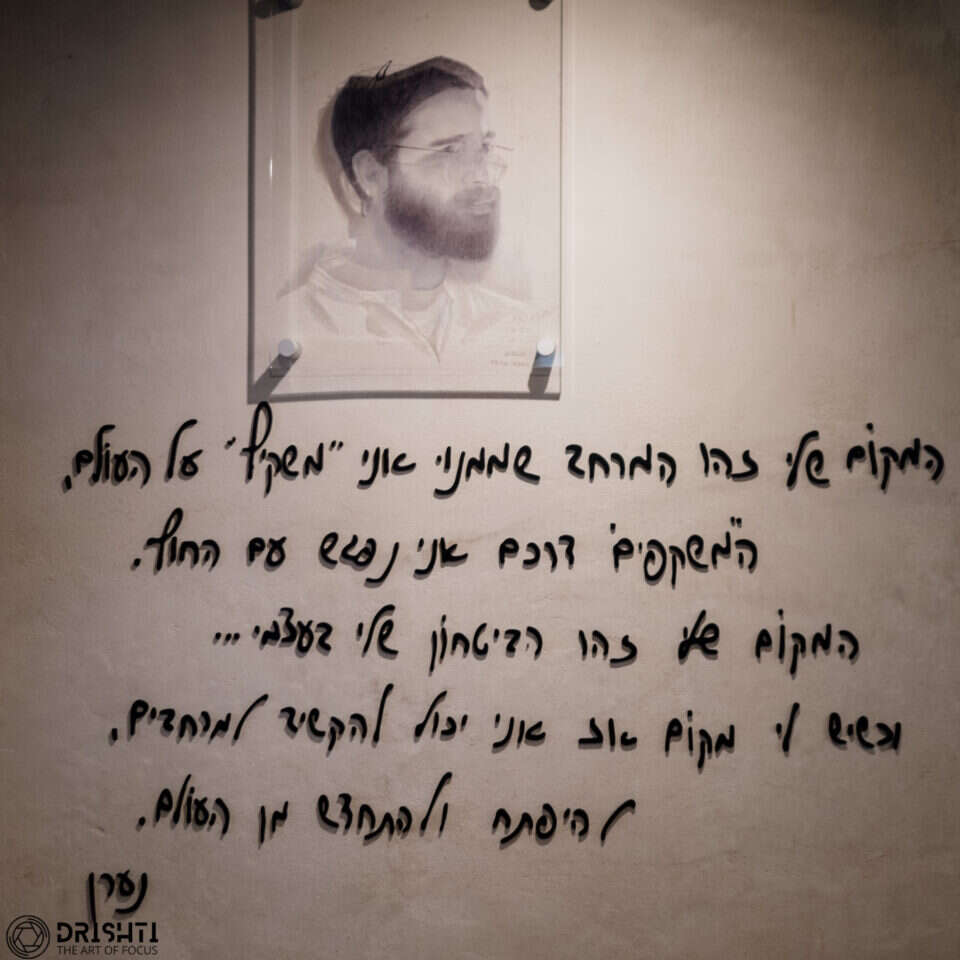 המקום שלי זהו המרחב שממנוי אני "משקיף" על העולם.
ה"משקפים" דרכם אני נפגש עם החוץ.
המקום שלי זהו הביטחון שלי בעצמי...
וכשיש לי מקום אז אני יכול להקשיב למרחבים.
להיפתח ולהתחדש מן העולם.
נערן
DRISHTI
THE ART OF FOCUS